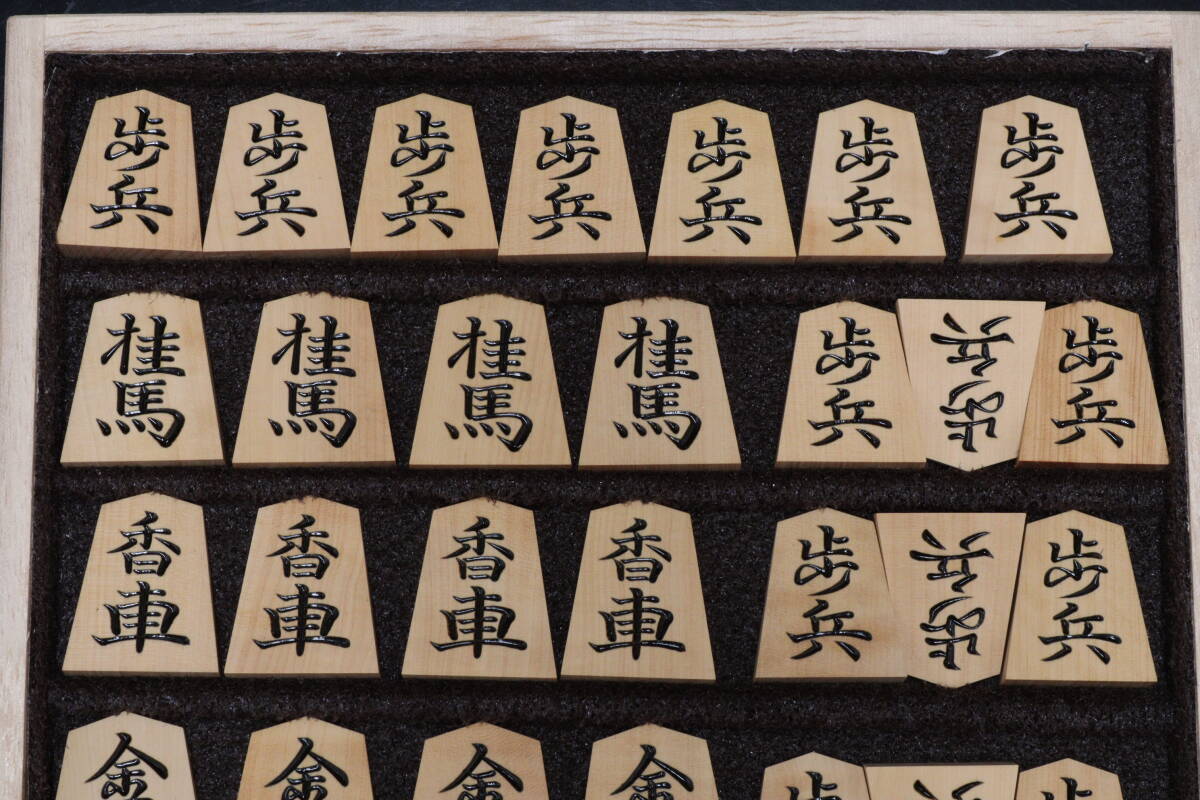 歩兵 歩兵 歩兵 歩兵 歩兵 歩兵 歩兵
桂馬 桂馬 桂馬 桂馬 歩兵 歩兵 歩兵
香車 香車 香車 香車 歩兵 歩兵 歩兵
金 金 金 金 歩 兵 歩